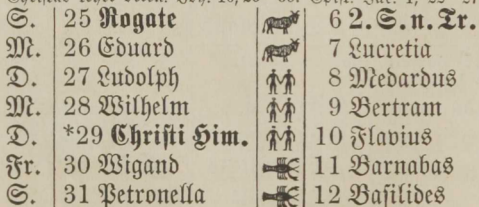 S. 25 Rogate 6 2. S. n. Tr.
M. 26 Eduard 7 Lucretia
D. 27 Ludolph 8 Medardus
M. 28 Wilhelm 9 Bertram
D. *29 Christi Him. 10 Flavius
Fr. 30 Wigand 11 Barnabas
S. 31 Petronella 12 Basilides